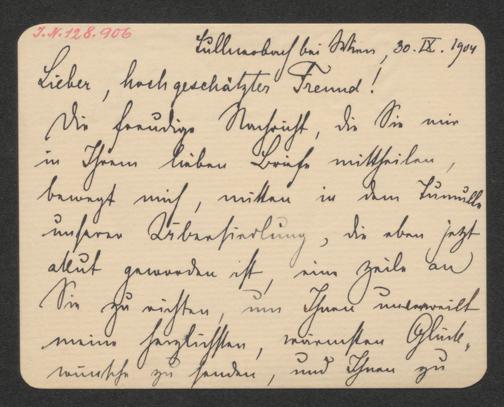 I.N. 128.906
Tullnerbach bei Wien, 30. IX. 1904
Lieber, hochgeschätzter Freund!
Die freudige Nachricht, die Sie mir
in Ihrem lieben Briefe mittheilen,
bewegt mich, mitten in dem Tumulte
unserer Übersiedlung, die eben jetzt
akut geworden ist, eine Zeile an
Sie zu richten, um Ihnen unverweilt
meine herzlichsten, wärmsten Glück-
wünsche zu senden, und Ihnen zu